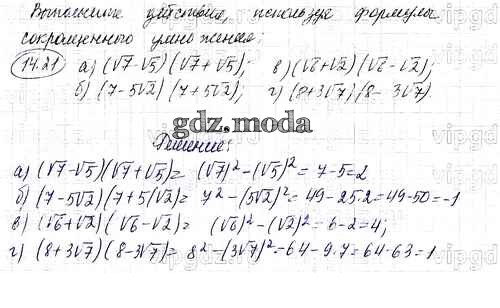 Выполните действия, используя формулы
сокращенного умножения:
14.21 а) (√7-√5)(√7+√5); в) (√6+√2)(√6-√2);
б) (7-5√2)(7+5√2); г) (8+3√7)(8-3√7).
gdz.moda
Решение:
а) (√7-√5)(√7+√5)= (√7)²-(√5)²= 7-5=2
б) (7-5√2)(7+5√2)= 7²-(5√2)²=49-25·2=49-50=-1
в) (√6+√2)(√6-√2)= (√6)²-(√2)²=6-2=4;
г) (8+3√7)(8-3√7)= 8²-(3√7)²=64-9·7=64-63=1